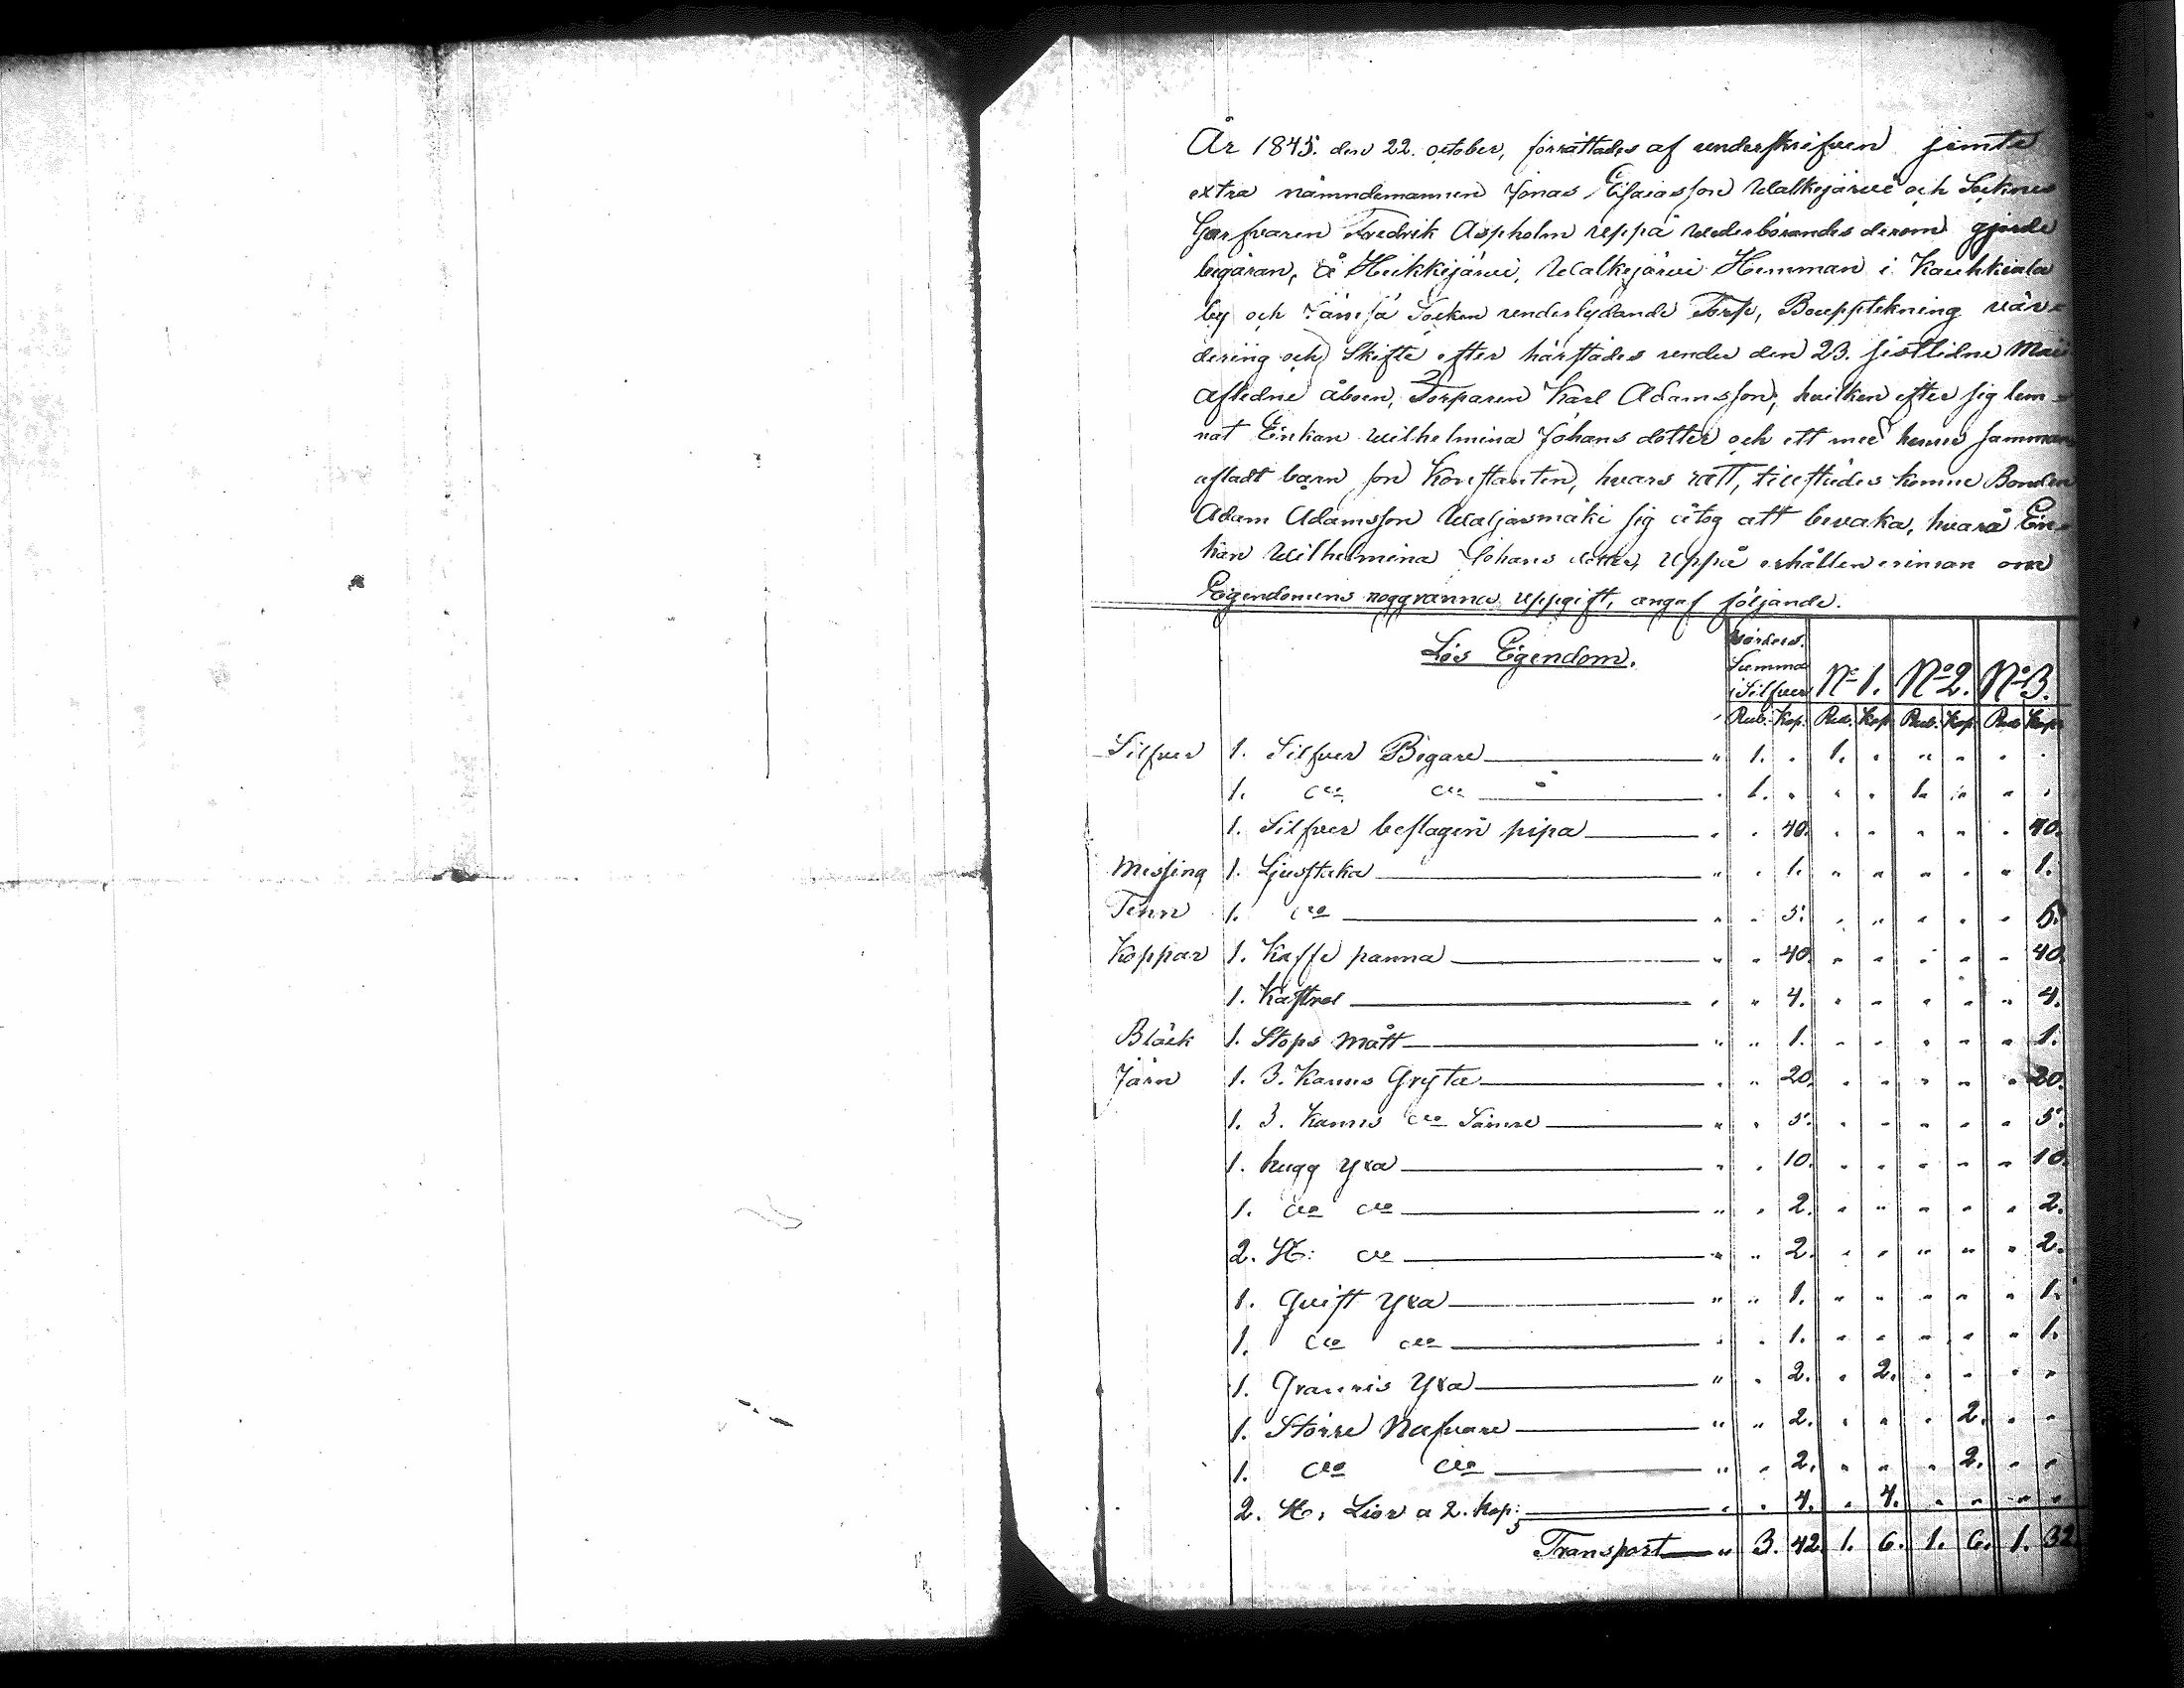 År 1845. den 22. october, förrättades af underskrifven jemte
extra nämndemannen Jonas Esaiasson Walkejärvi och Socknes
Garfvaren Fredrik Aspholm uppå wederbörandes derom gjorde
begäran, å Heikkijärvi, Walkejärvi Hemman i Kauhkiala
by och Jämsä Socken underlydande Torp, Boupptekning vär-
dering och Skifte efter härstädes under den 23. sistlidne Maii
aflidne åboen, Torparen Karl Adamsson, hvilken efter sig lem-
nat Enkan Wilhelmina Johans dotter och ett med henne samman
afladt barn, son Konstantin, hvars rätt, tillstädes komne Bonden
Adam Adamsson Waljasmäki sig åtog att bevaka, hvarå En-
kan Wilhelmina Johans dotter, uppå erhållen erinran om
Egendomens noggranna uppgift, angaf följande.
Lös Egendom. Summa i Silfver N° 1. N° 2. N° 3.
Rub. Kop. Rub. Kop. Rub. Kop. Rub. Kop.
Silfver 1. Silfver Bägare " 1. " 1. " " " " "
1. dto dto " 1. " " " 1. " " "
1. Silfver beslagen pipa " " 40. " " " " " 40.
Messing 1. Ljusstaka " " 1. " " " " " 1.
Tenn 1. dto " " 5. " " " " " 5.
Koppar 1. Kaffe panna " " 40. " " " " " 40.
1. Kastrol " " 4. " " " " " 4.
Bläck 1. Stops mått " " 1. " " " " " 1.
Järn 1. 3. Kanns Gryta " " 20. " " " " " 20.
1. 3. Kanns dto Sämre " " 5. " " " " " 5.
1. hugg yxa " " 10. " " " " " 10.
1. dto dto " " 2. " " " " " 2.
2. St: dto " " 2. " " " " " 2.
1. Qvist yxa " " 1. " " " " " 1.
1. dto dto " " 1. " " " " " 1.
1. yxa " " 2. " 2. " " " "
1. Större Nafvare " " 2. " " " 2. " "
1. dto dto " " 2. " " " 2. " "
2. St: Liar a 2. kop: " " 4. " 4. " " " "
Transport " 3. 42. 1. 6. 1. 6. 1. 32